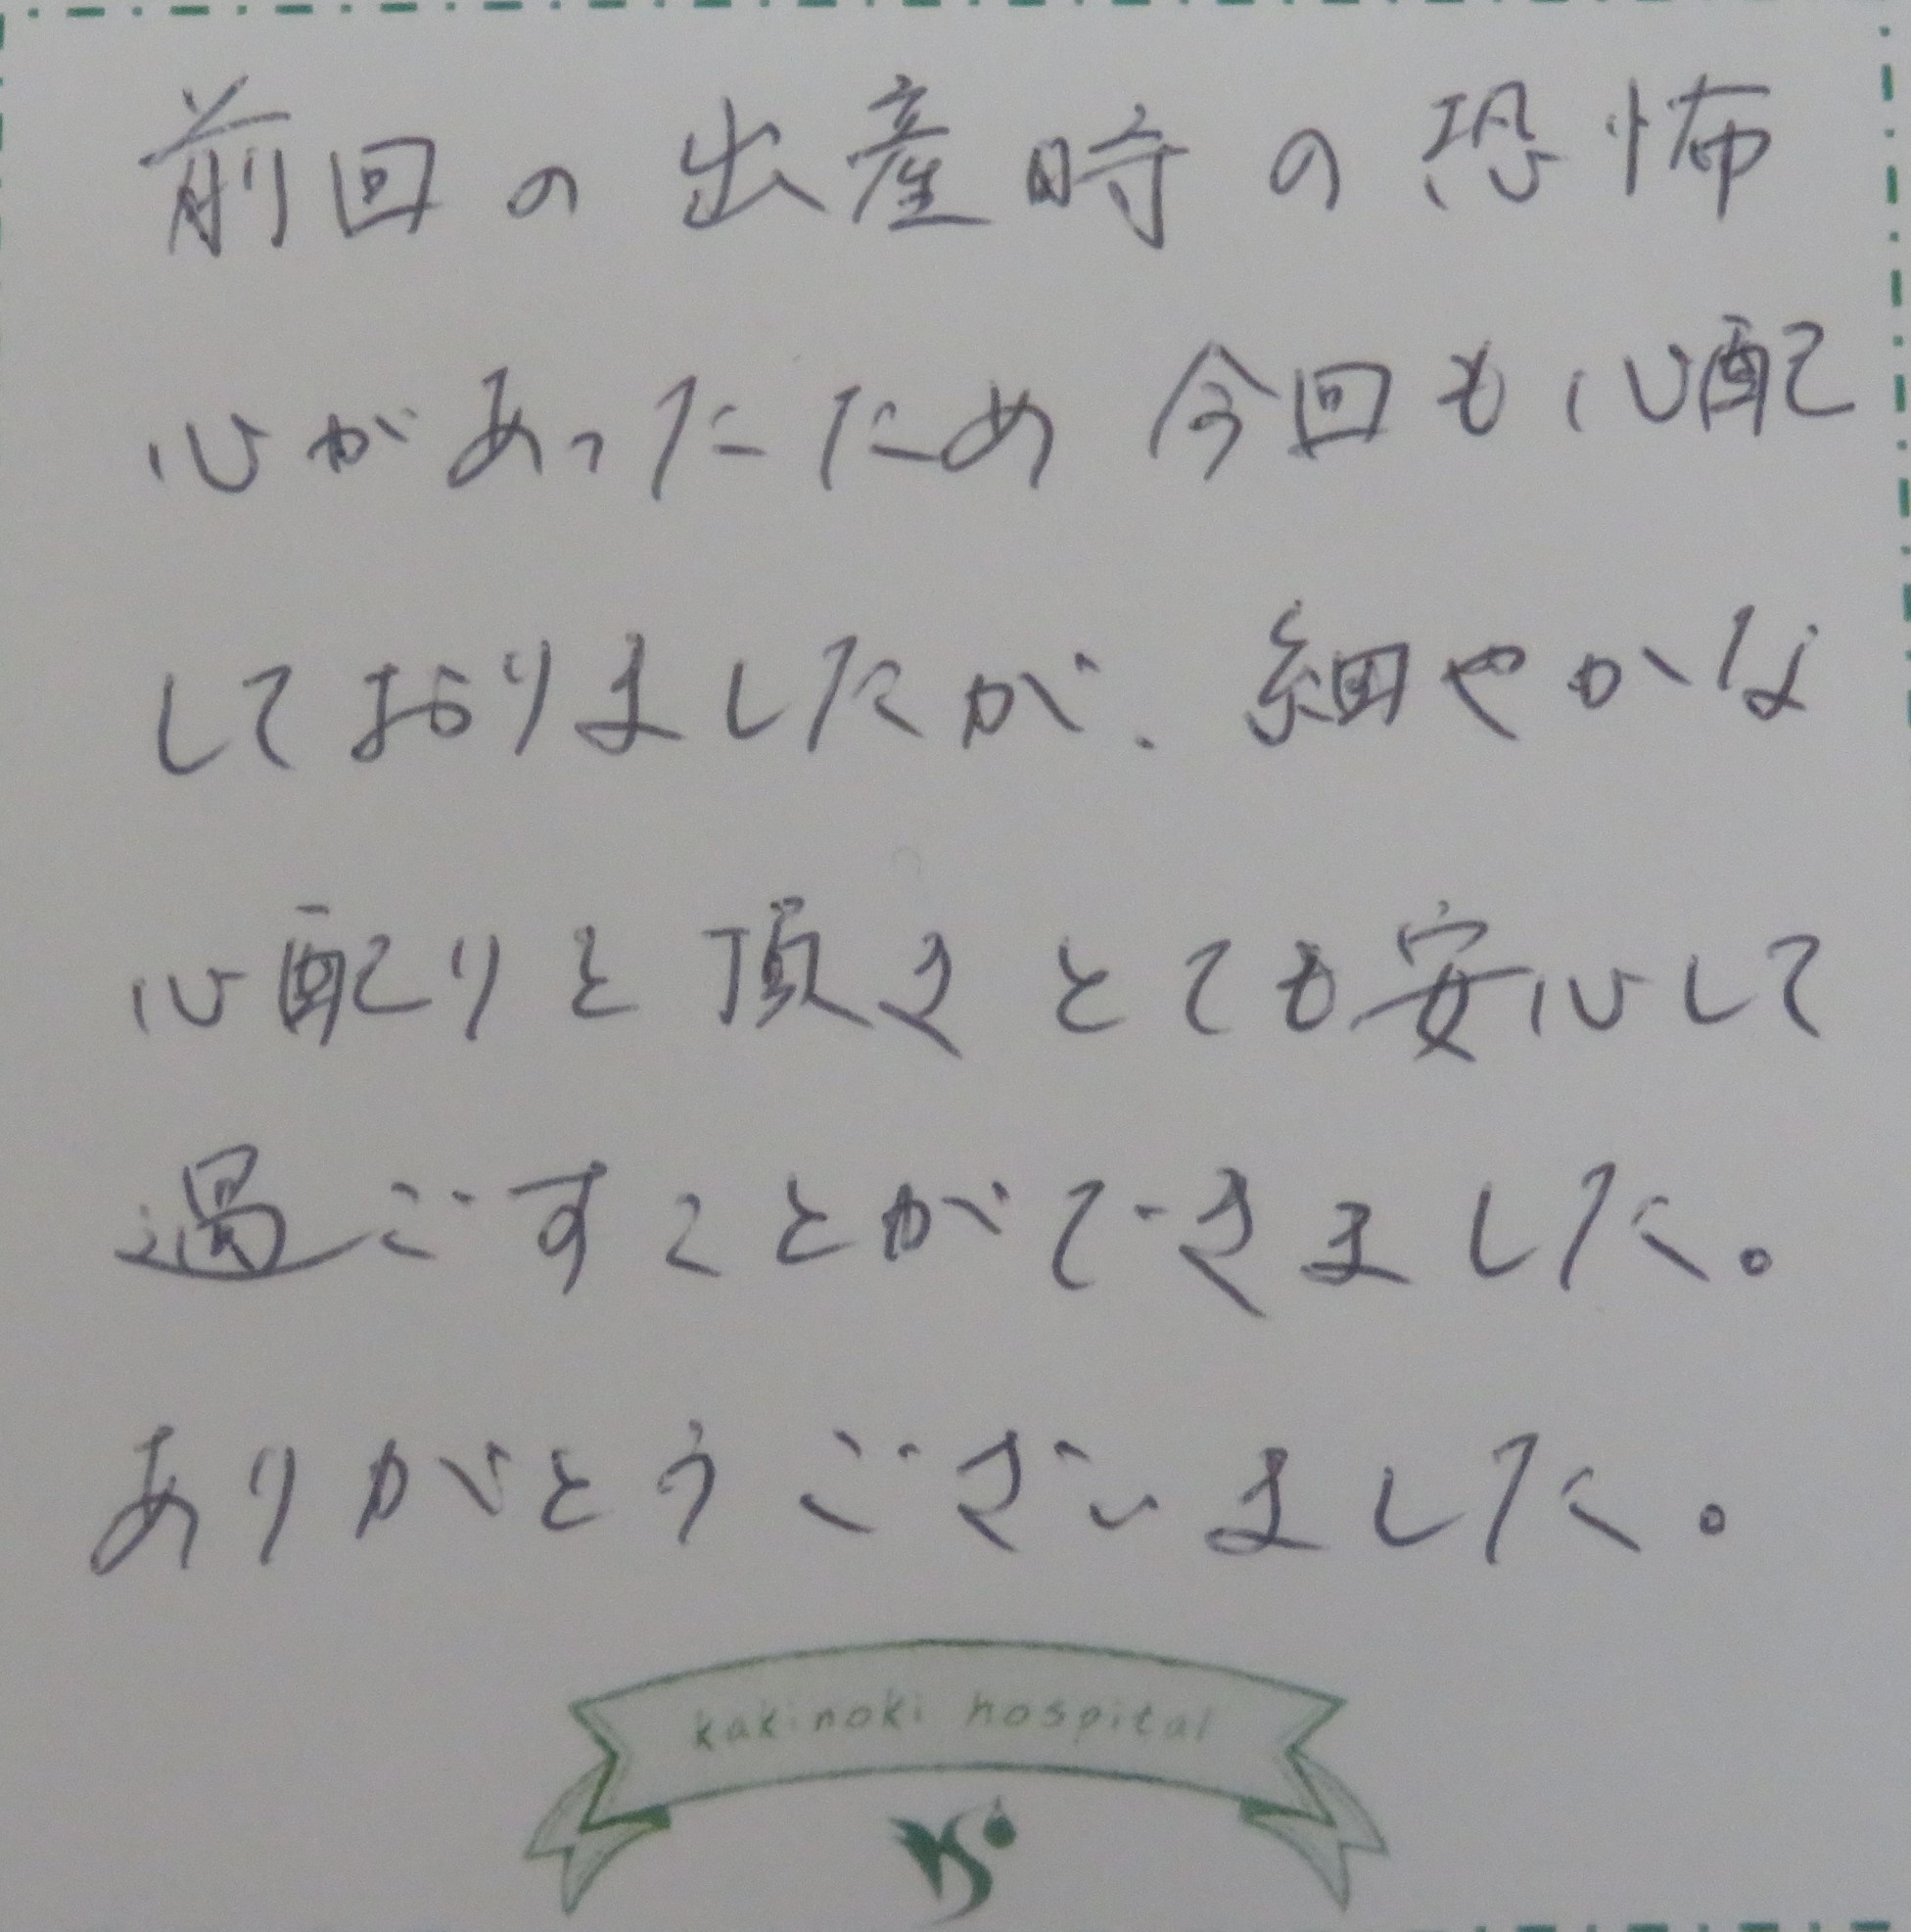 前回の出産時の恐怖
心があったため 今回も心配
しておりましたが、細やかな
心配りと頂きとても安心して
過ごすことができました。
ありがとうございました。
kakinoki hospital